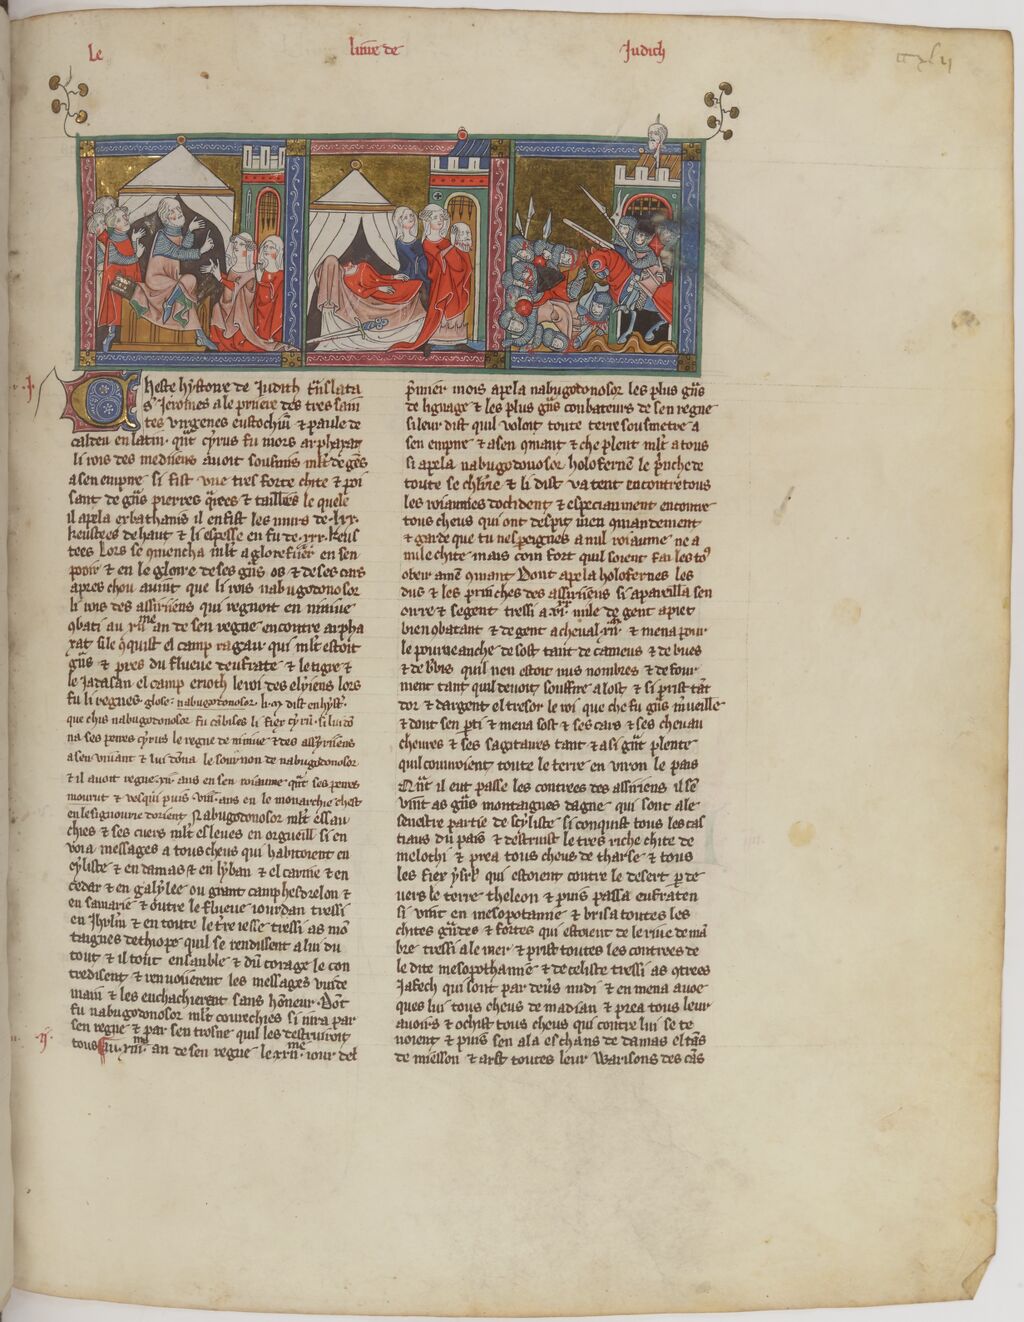 le liure de Judich
cxlij
.j.
Cheste hystoire de Judith trāslata
s' Jeroīmes a le pruiere des tres sain
tes virgenes eustochiū & paule de
caldeu en latin. qn̄t cyrus fu mors arphaxat
li rois des mediiens auoit sousmis ml't de gēs
a sen empire si fist vne tres forte chite & poi
sant de gn̄s pierres q̄rees & tailliees le quele
il apela exbathanis il en fist les murs de .lxx.
keustees de haut & li espesse en fu de .xxx. keus
tees Lors se cōmencha ml't a glorefiier en sen
pooir & en le gloire de ses gn̄s os & de ses cars
apres chou auint que li rois nabugodonosor
li rois des assiriiens qui regnoit en niniue
cōbati au xijme an de sen regne encontre arpha
xat si le cōquist el camp ragau qui ml't estoit
gn̄s & pres du flueue deufrate & le tigre &
le Jadasan el camp erioth le roi des elyiens lors
fu li regnes. glose. nabugodonosor
que chis nabugodonosor fu cābises li fiex cyri. si li dō
na ses peres cyrus le regne de niniue & des assyriiens
a sen viuant & lui dōna le sournon de nabugodonosor
& il auoit regne .xij. ans en sen roiaume qn̄t ses peres
mourut & vesqui puis .viij. ans en le monarchie chest
en le signourie dorient Nabugodonosor ml't essau
chies & ses cuers ml't esleues en orgueill si en
voia messages a tous cheus qui habitoient en
cylisce & en damas & en lyban & el carme & en
cedar & en galylee ou grant camp hesdrelon &
en samarie & outre le flueue iourdan tressi
en Jhrl'm & en toute le tre iesse tressi as mō
taignes dethiope quil se rendissent a lui du
tout & il tout ensanble & dun corage le con
tredisent & renuoierent les messages vuide
main & les enchachierent sans hōneur. Dōt
fu nabugodonosor ml't courechies si iura par
sen regne & par sen trosne quil les destruiroit
.ij.
tous Au xiijme an de sen regne le xxijme iour del
p̄mier mois apela nabugodonosor les plus gn̄s
de lignage & les plus gn̄s conbateurs de sen regne
si leur dist quil voloit toute terre sousmetre a
sen empire & a sen cōmant & che pleut ml't a tous
si apela nabugodonosor holoferne le p̄nche de
toute se chl'rie & li dist va tent encontre tous
les roiaumes dochident & especiaument encontre
tous cheus qui ont despit men cōmandement
& garde que tu nespeignes a nul roiaume ne a
nule chite mais com fort quil soient fai les to9
obeir a men cōmant Dont apela holofernes les
dus & les prinches des assiriiens si apareilla sen
oirre & se gent tressi a .vixx. mile de gent a piet
bien cōbatant & de gent a cheual .xijm. & mena pour
le pourueanche de sost tant de cameus & de bues
& de b'bis quil nen estoit nus nombres & de four
ment tant quil deuoit souffire a lost & si prist tāt
dor & dargent el tresor le roi que che fu gn̄s mueille
& dont sen p̄ti & mena sost & ses cars & ses cheuau
cheures & ses sagitaires tant & a si gn̄t plente
quil couuroient toute le terre en uiron le pais
Qn̄t il eut passe les contrees des assiriens il sē
vint as gn̄s montaignes dagne qui sont a le
senestre partie de scylisce si conquist tous les cas
tiaus du pais & destruist le tres riche chite de
melothi & prea tous cheus de tharse & tous
les fiex ysr'l qui estoient contre le desert p̄ de
uers le terre theleon & puis passa eufraten
si vint en mesopotamie & brisa toutes les
chites gn̄des & fortes qui estoient de le riue de mā
bre tressi a le mer & prist toutes les contrees de
le dite mesopothamie & de celisce tressi as cōtrees
Jafech qui sont par deu's midi & en mena auoe
ques lui tous cheus de madian & prea tous leur
auoirs & ochist tous cheus qui contre lui se te
noient & puis sen ala es chans de damas el tās
de miesson & arst toutes leur warisons des cās